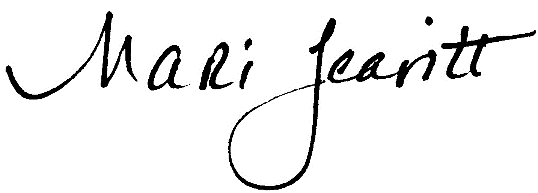 Mari Leavitt